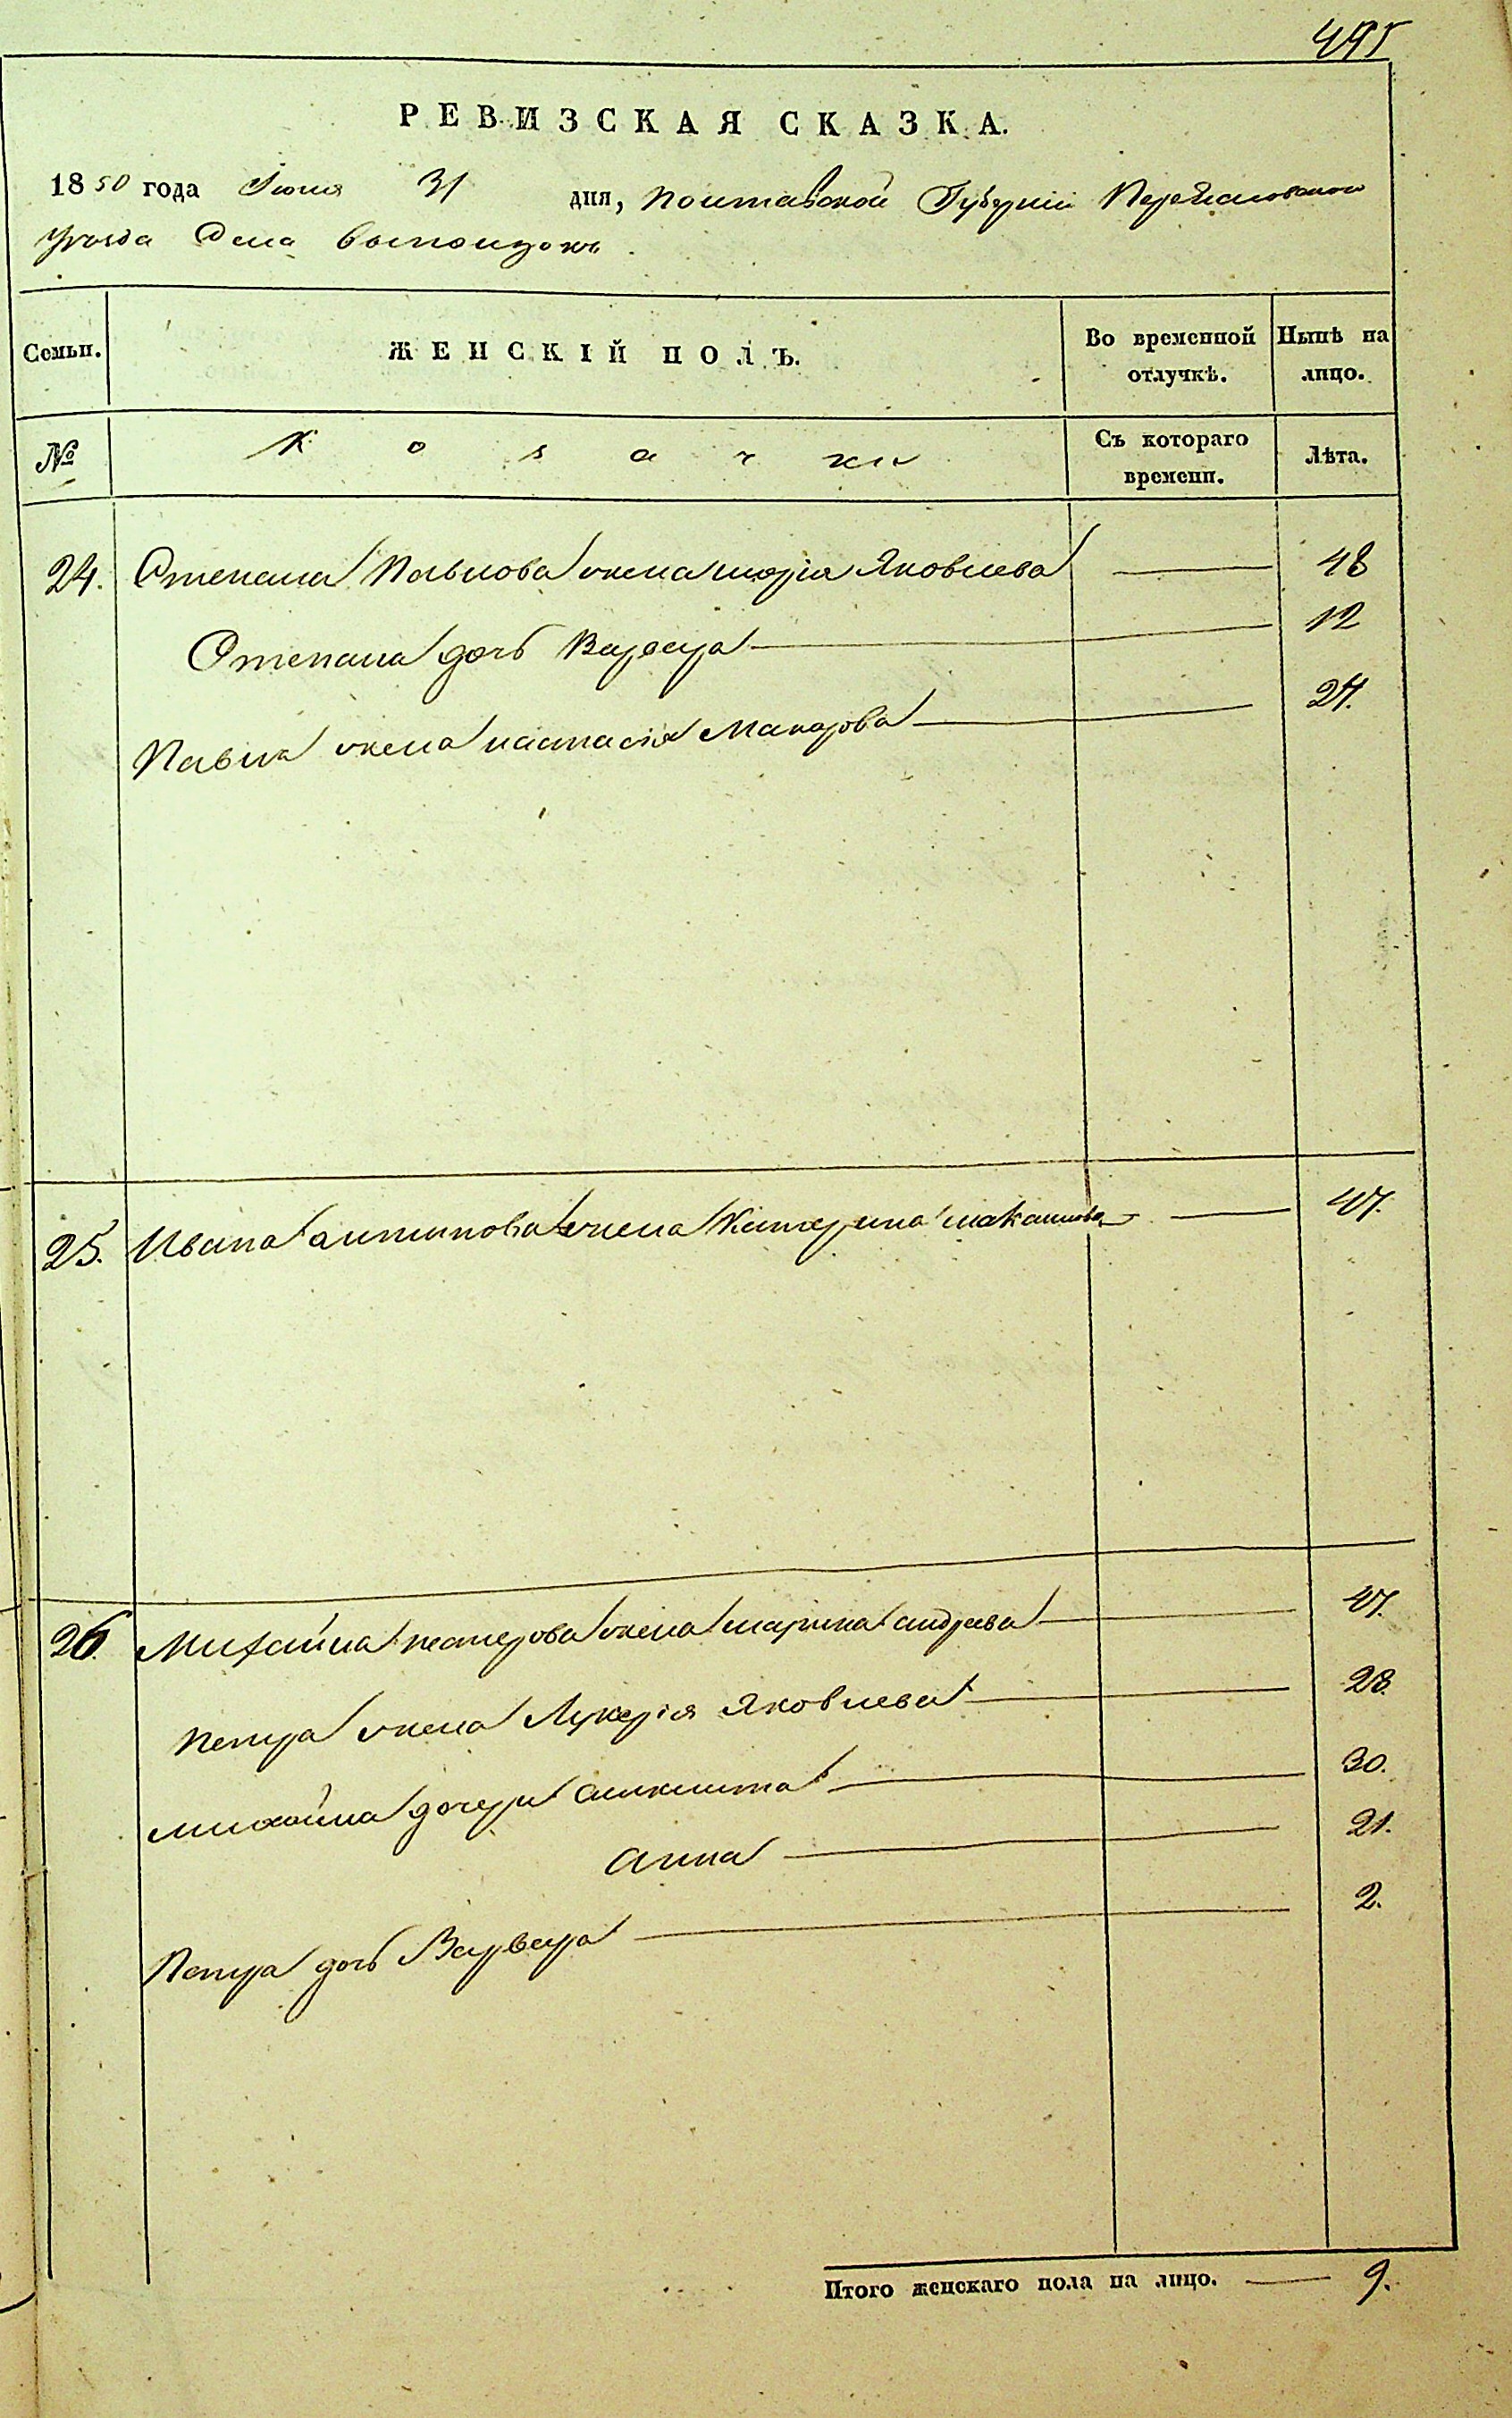 495
РЕВИЗСКАЯ СКАЗКА.
1850 года Июня 31 дня, Полтавской Губерніи Переяславского
Уѣзда Села
Семьи. ЖЕНСКІЙ ПОЛЪ. Во временной отлучкѣ. Нынѣ на лицо.
№ Козачки Съ котораго времени. Лѣта.
24. Степана Павлова жена марія Яковлева 48
Степана дочь Варвара 12
Павла жена настасія Макарова 24.
25. Ивана антипова жена Катерина 47.
26. Михайла нестерова жена марина андреева 47.
Петра жена Лукерія Яковлева 28.
михайла дочери 30.
анна 21.
Петра дочь Варвара 2.
Итого женскаго пола на лицо. 9.